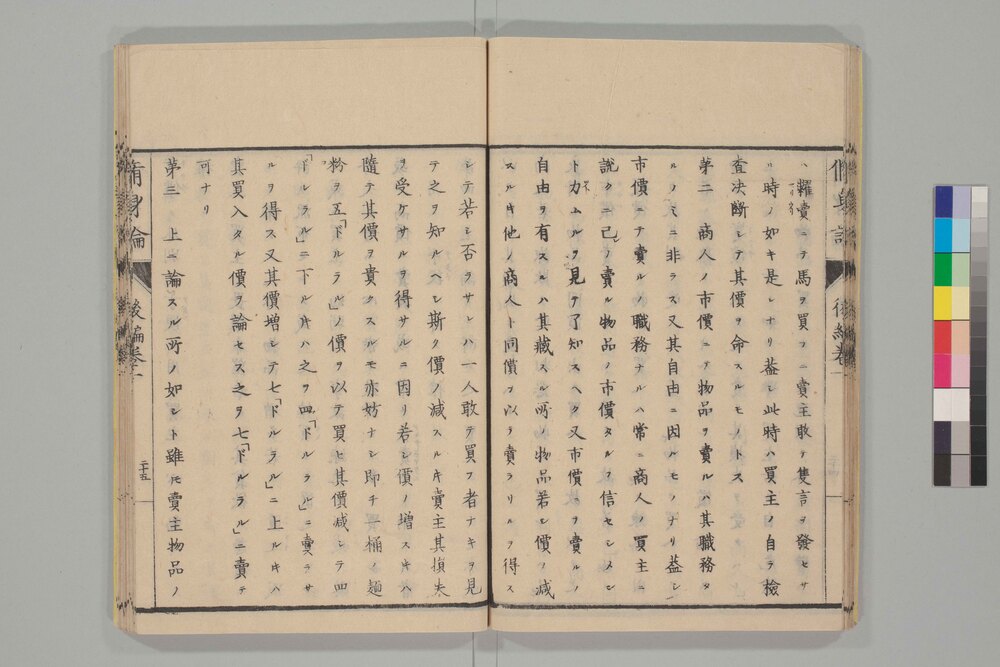 ハ糶賣ニテ馬ヲ買フニ賣主敢テ隻言ヲ發セサ
ル時ノ如キ是レナリ蓋シ此時ハ買主ノ自ラ檢
査決斷シテ其價ヲ命スルモノトス
第二 商人ノ市價ニテ物品ヲ賣ルハ其職務タ
ルノミニ非ラス又其自由ニ因ルモノナリ蓋シ
市價ニテ賣ルノ職務ナルハ常ニ商人ノ買主ニ
說クニ己レノ賣ル物品ノ市價タルヲ信セシメン
ト力ムルヲ見テ了知スヘク又市價ニテ賣ルノ
自由ヲ有スルハ其藏スル所ノ物品若シ價ヲ減
スルキ他ノ商人ト同價ヲ以テ賣ラサルヲ得ス
シテ若シ否ラサレハ一人敢テ買フ者ナキヲ見
テ之ヲ知ルヘシ斯ク價ノ減スルキ賣主其損失
ヲ受ケサルヲ得サルニ因リ若シ價ノ增スキハ
隨テ其價ヲ貴クスルモ亦妨ナシ即チ一桶ノ麺
粉ヲ五「ドルラル」ノ價ヲ以テ買ヒ其價減シテ四
「ドルラル」ニ下ルキハ之ヲ四「ドルラル」ニ賣ラサ
ルヲ得ス又其價增シテ七「ドルラル」ニ上ルキハ
其買入タル價ヲ論セス之ヲ七「ドルラル」ニ賣テ
可ナリ
第三 上ニ論スル所ノ如シト雖𪜈賣主物品ノ
脩身論
後編卷二
二十五